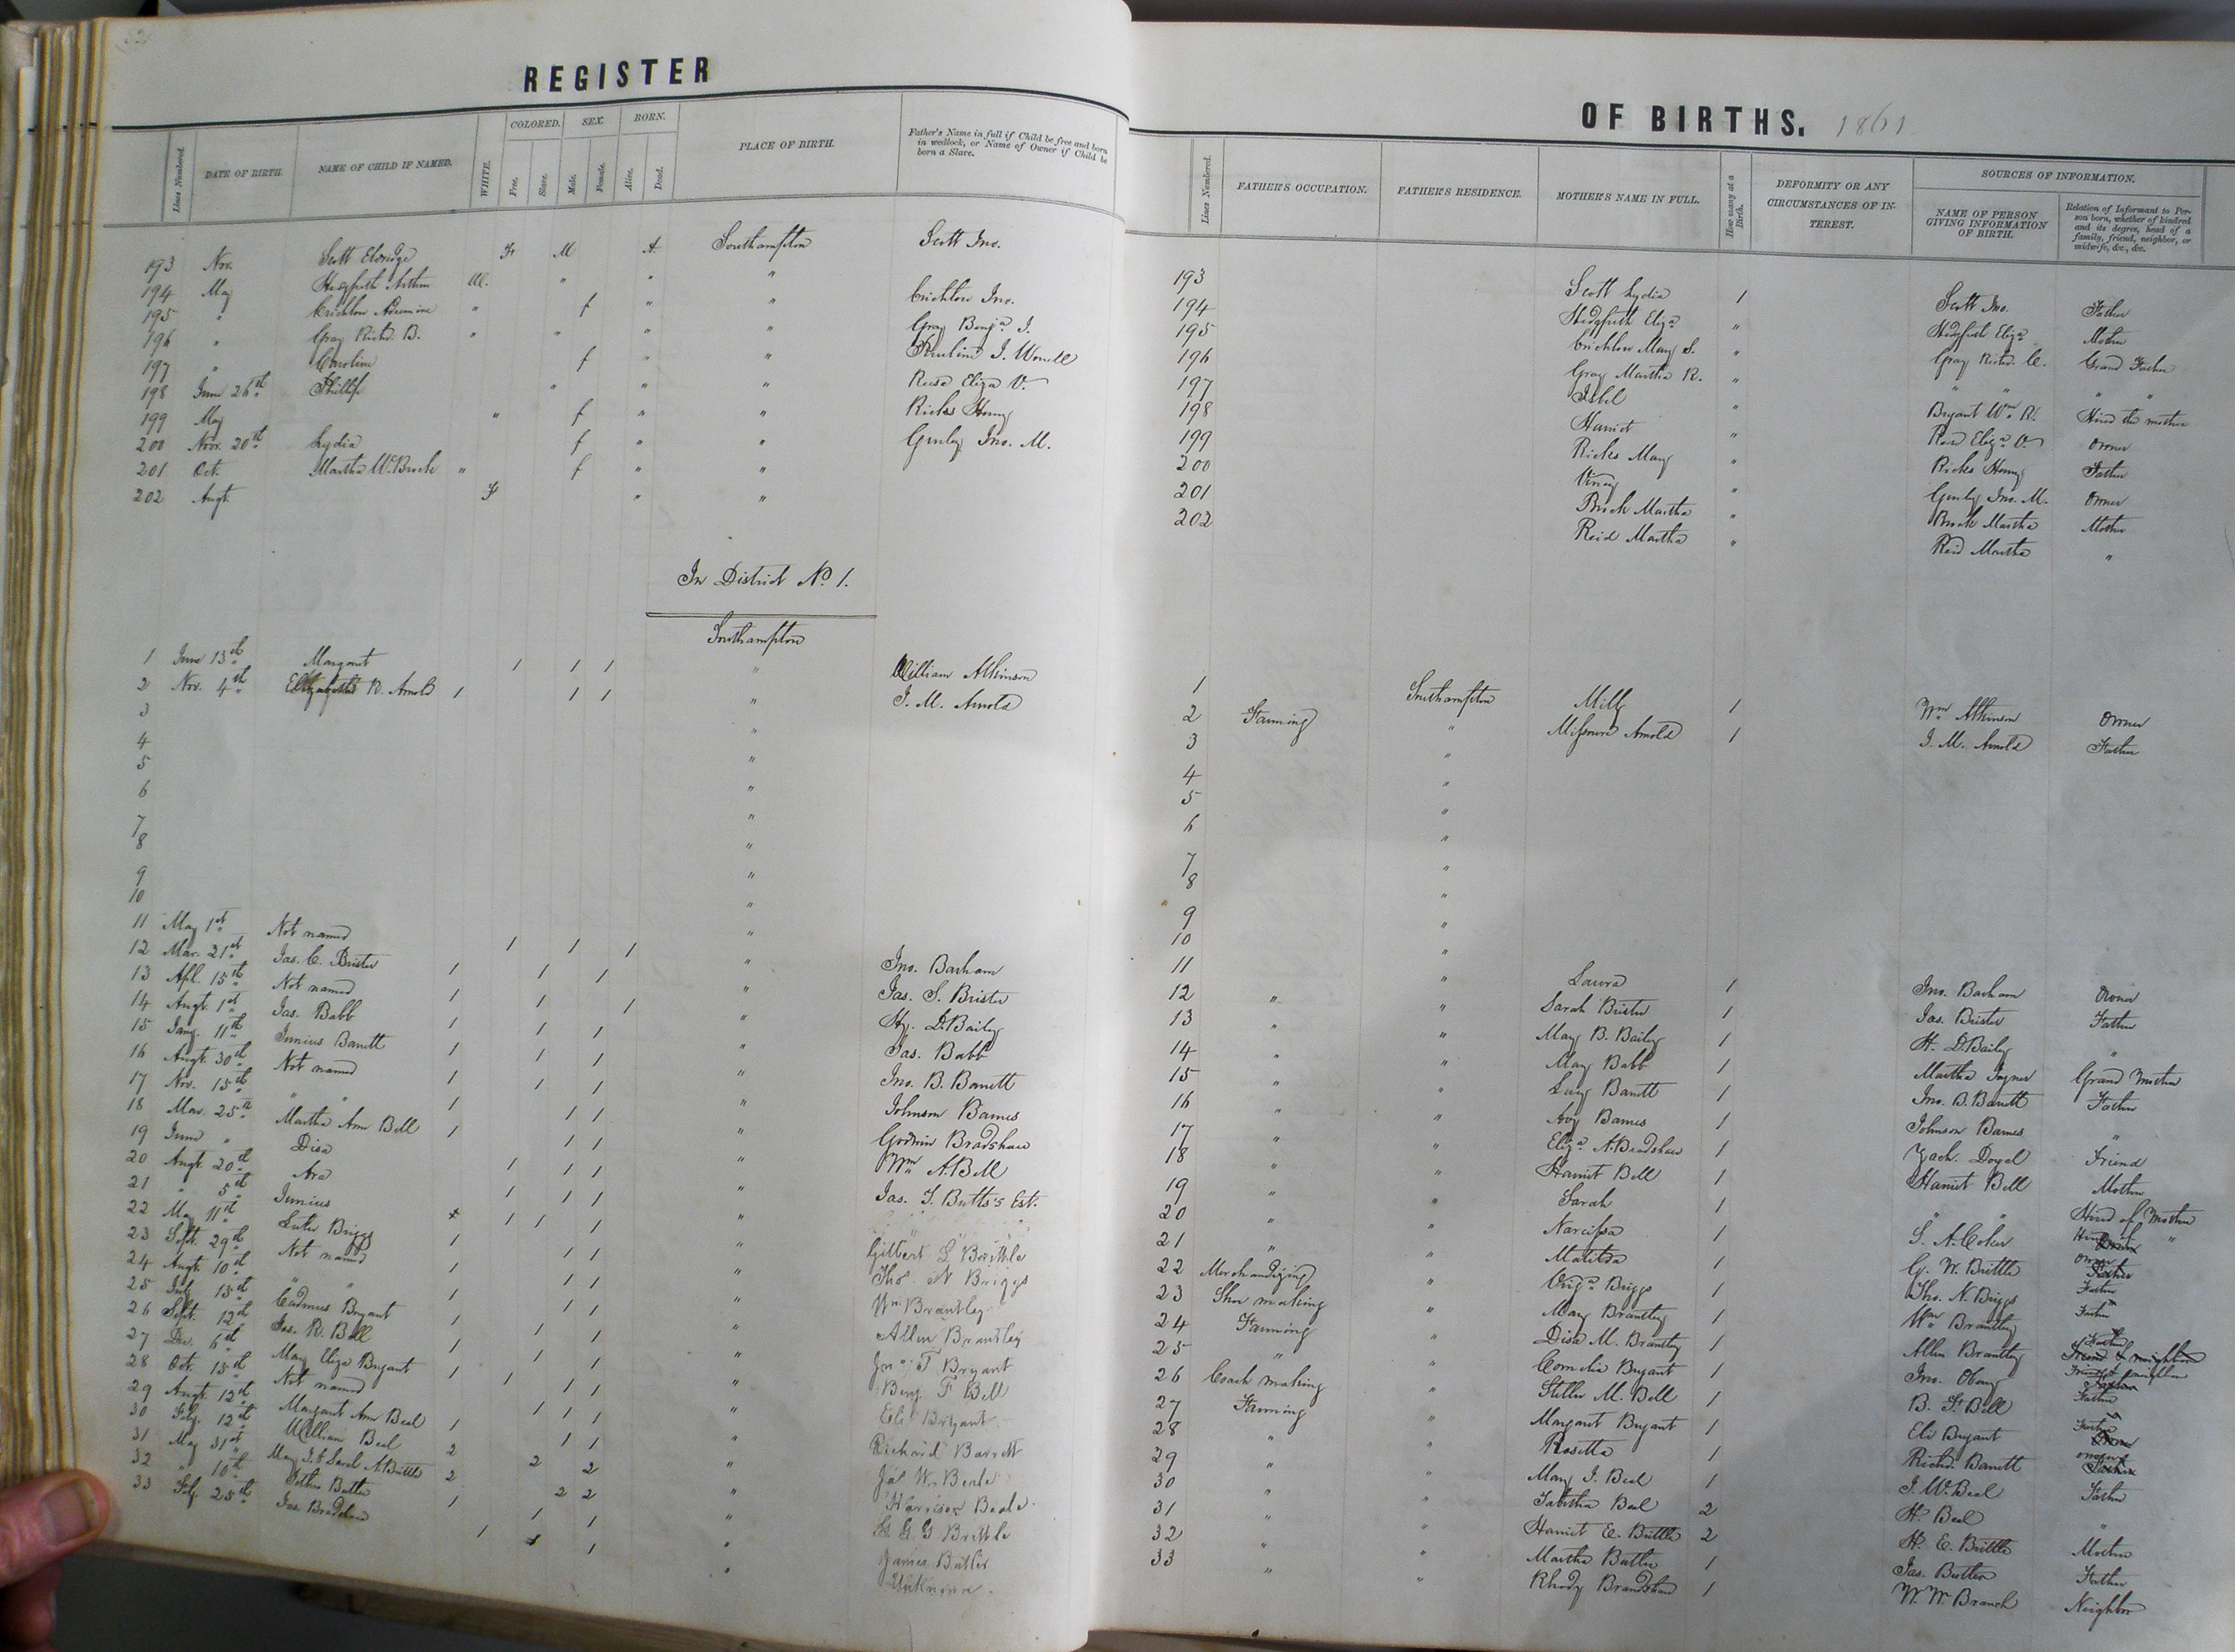 REGISTER
Lines Numbered. DATE OF BIRTH. NAME OF CHILD IF NAMED. WHITE. COLORED. Free. Slave. SEX. Male. Female. BORN. Alive. Dead. PLACE OF BIRTH. Father's Name in full if Child be free and born in wedlock, or Name of Owner if Child be born a Slave.
193 Nov. Scott Eldridge Fr M A. Southampton Scott Jno.
194 May " " "
195 " f " " Crichlow Jno.
196 " Gray Richd. B. " " " " Gray Benja. J.
197 " Caroline f " "
198 June 26th Phillip " " " Reese Eliza V.
199 May " f " " Ricks Henry
200 Nov. 20th Lydia f " " Gurley Jno. M.
201 Oct. Martha W. Brock " f " "
202 Augt. Fr " "
In District No. 1.
Southampton
1 June 13th Margaret / / / " William Atkinson
2 Nov. 4th Elizabeth R. Arnold / / / " J. M. Arnold
3 "
4 "
5 "
6 "
7 "
8 "
9 "
10 "
11 May 1st Not named / / / " Jno. Barham
12 Mar. 21st Jas. C. Brister / / / " Jas. S. Brister
13 Apl. 15th Not named / / / " Hy. D. Bailey
14 Augt. 1st Jas. Babb / / / " Jas. Babb
15 Jany. 11th Junius Barrett / / / " Jno. B. Barrett
16 Augt. 30th Not named / / / " Johnson Barnes
17 Nov. 15th " " / / / " Godwin Bradshaw
18 Mar. 25th Martha Ann Bell / / / " Wm. A. Bell
19 June " Disa / / / " Jas. T. Butts's Est.
20 Augt. 20th Ara / / /
21 " 5th Junius / / / " Gilbert L Brittle
22 May 11th Luter Briggs / / / " Thos. N Briggs
23 Sept. 29th Not named / / / " Wm. Brantley
24 Augt. 10th " " / / / " Allen Brantley
25 July 15th Cadmus Bryant / / / " Jno. T Bryant
26 Sept. 12th Jas. R. Bell / / / " Benj. F Bell
27 Dec. 6th Mary Eliza Bryant / / / " Eli Bryant
28 Oct. 15th Not named / / / " Richard Barrett
29 Augt. 12th Margaret Ann Beal / / / " Jas W. Beale
30 Feby. 12th William Beal 2 2 2 " Harrison Beale
31 May 31st Mary J. & Sarah A. Brittle 2 2 2 " Brittle
32 " 10th Butler / / / " James Butler
33 Feby. 25th Jas. Bradshaw / / " Unknown
OF BIRTHS. 1861
Lines Numbered. FATHER'S OCCUPATION. FATHER'S RESIDENCE. MOTHER'S NAME IN FULL. How many at a Birth. DEFORMITY OR ANY CIRCUMSTANCES OF INTEREST. SOURCES OF INFORMATION. NAME OF PERSON GIVING INFORMATION OF BIRTH. Relation of Informant to Person born, whether of kindred and its degree, head of a family, friend, neighbor, or midwife, &c., &c.
193 Scott Lydia 1 Scott Jno. Father
194 Hedgpeth Eliza. " Hedgpeth Eliza. Mother
195 Crichlow Mary S. " Gray Richd. Grand Father
196 Gray Martha R. " " " "
197 Isbel " Bryant Wm. R. Hired the mother
198 Harriet " Reese Eliza. V. Owner
199 Ricks Mary " Ricks Henry Father
200 Viney " Gurley Jno. M. Owner
201 Brock Martha " Brock Martha Mother
202 Reid Martha " Reid Martha "
1 Southampton Milly 1 Wm. Atkinson Owner
2 Farming " Missouri Arnold 1 J. M. Arnold Father
3 "
4 "
5 "
6 "
7 "
8 "
9 "
10 "
11 " Laura 1 Jno. Barham Owner
12 " " Sarah Brister 1 Jas. Brister Father
13 " " Mary B. Bailey 1 H. D. Bailey "
14 " " Mary Babb 1 Martha Joyner Grand Mother
15 " " Lucy Barrett 1 Jno. B. Barrett Father
16 " " Barnes 1 Johnson Barnes "
17 " " Eliza. A. Bradshaw 1 Zach. Doyel Friend
18 " " Harriet Bell 1 Harriet Bell Mother
19 " " Sarah 1 " " Hired of Mother
20 " " Narcissa 1 S. A. Coker "
21 " " Matilda 1 G. W. Brittle Owner
22 Merchandizing " Virga. Briggs 1 Thos. N. Briggs Father
23 Shoe making " Mary Brantley 1 Wm. Brantley Father
24 Farming " Disa M. Brantley 1 Allen Brantley Father
25 " " Cornelia Bryant 1 Jno. Friend & neighbor
26 Coach making " M. Bell 1 B. F. Bell Father
27 Farming " Margaret Bryant 1 Eli Bryant Father
28 " " Rosetta 1 Richd. Barrett Owner
29 " " Mary J. Beal 1 J. W. Beal Father
30 " " Tabitha Beal 2 H. Beal "
31 " " Harriet E. Brittle 2 H. E. Brittle Mother
32 " " Martha Butler 1 Jas. Butler Father
33 " " Rhody Brandshaw 1 W. W. Branch Neighbor